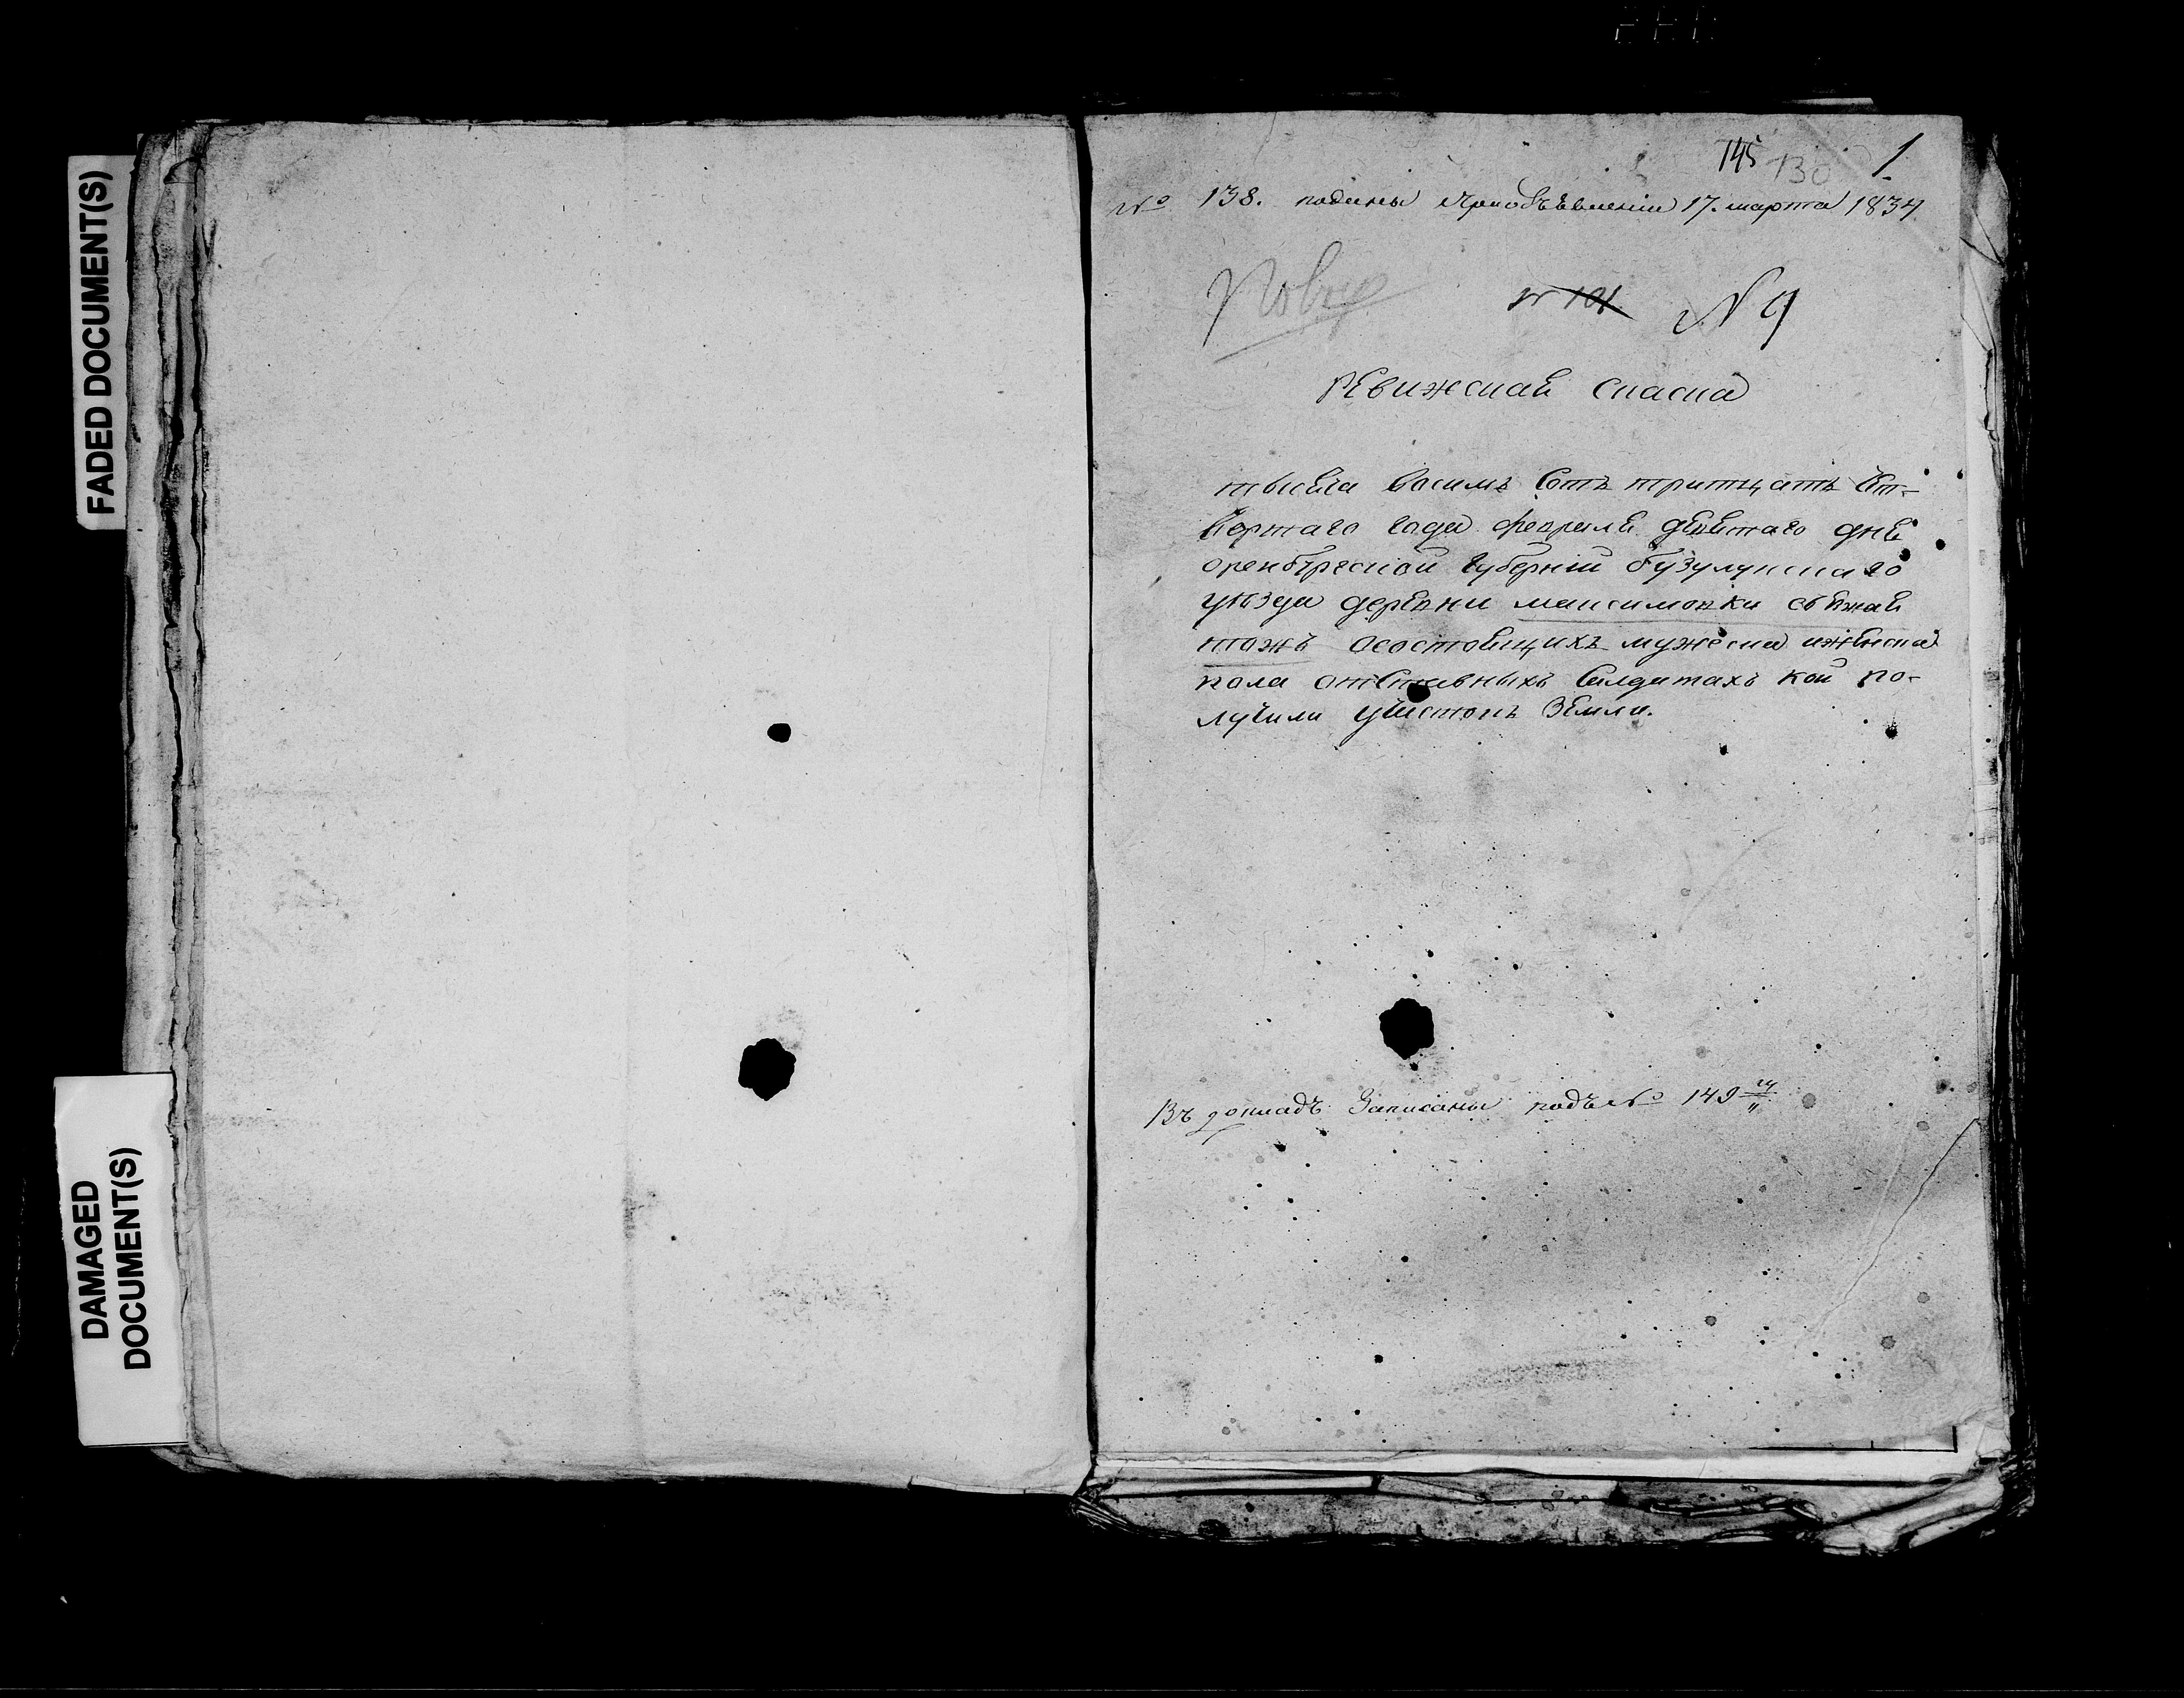 FADED DOCUMENT(S)
DAMAGED
DOCUMENT(S)
145 130 1
№ 138. поданы приобъявлении 17. марта 1834
Повер
№ 101 № 9
Ревижская скаска
тысяча восимъ сотъ тритцатъ чет-
вертаго года февраля девятаго дня
оренбурской губернии бузулукскаго
уезда деревни максимовки
тожъ осостоящихъ мужеска иженска
пола отставныхъ салдатахъ кои по-
лучили участокъ земли.
Въ докладъ записаны подъ № 149